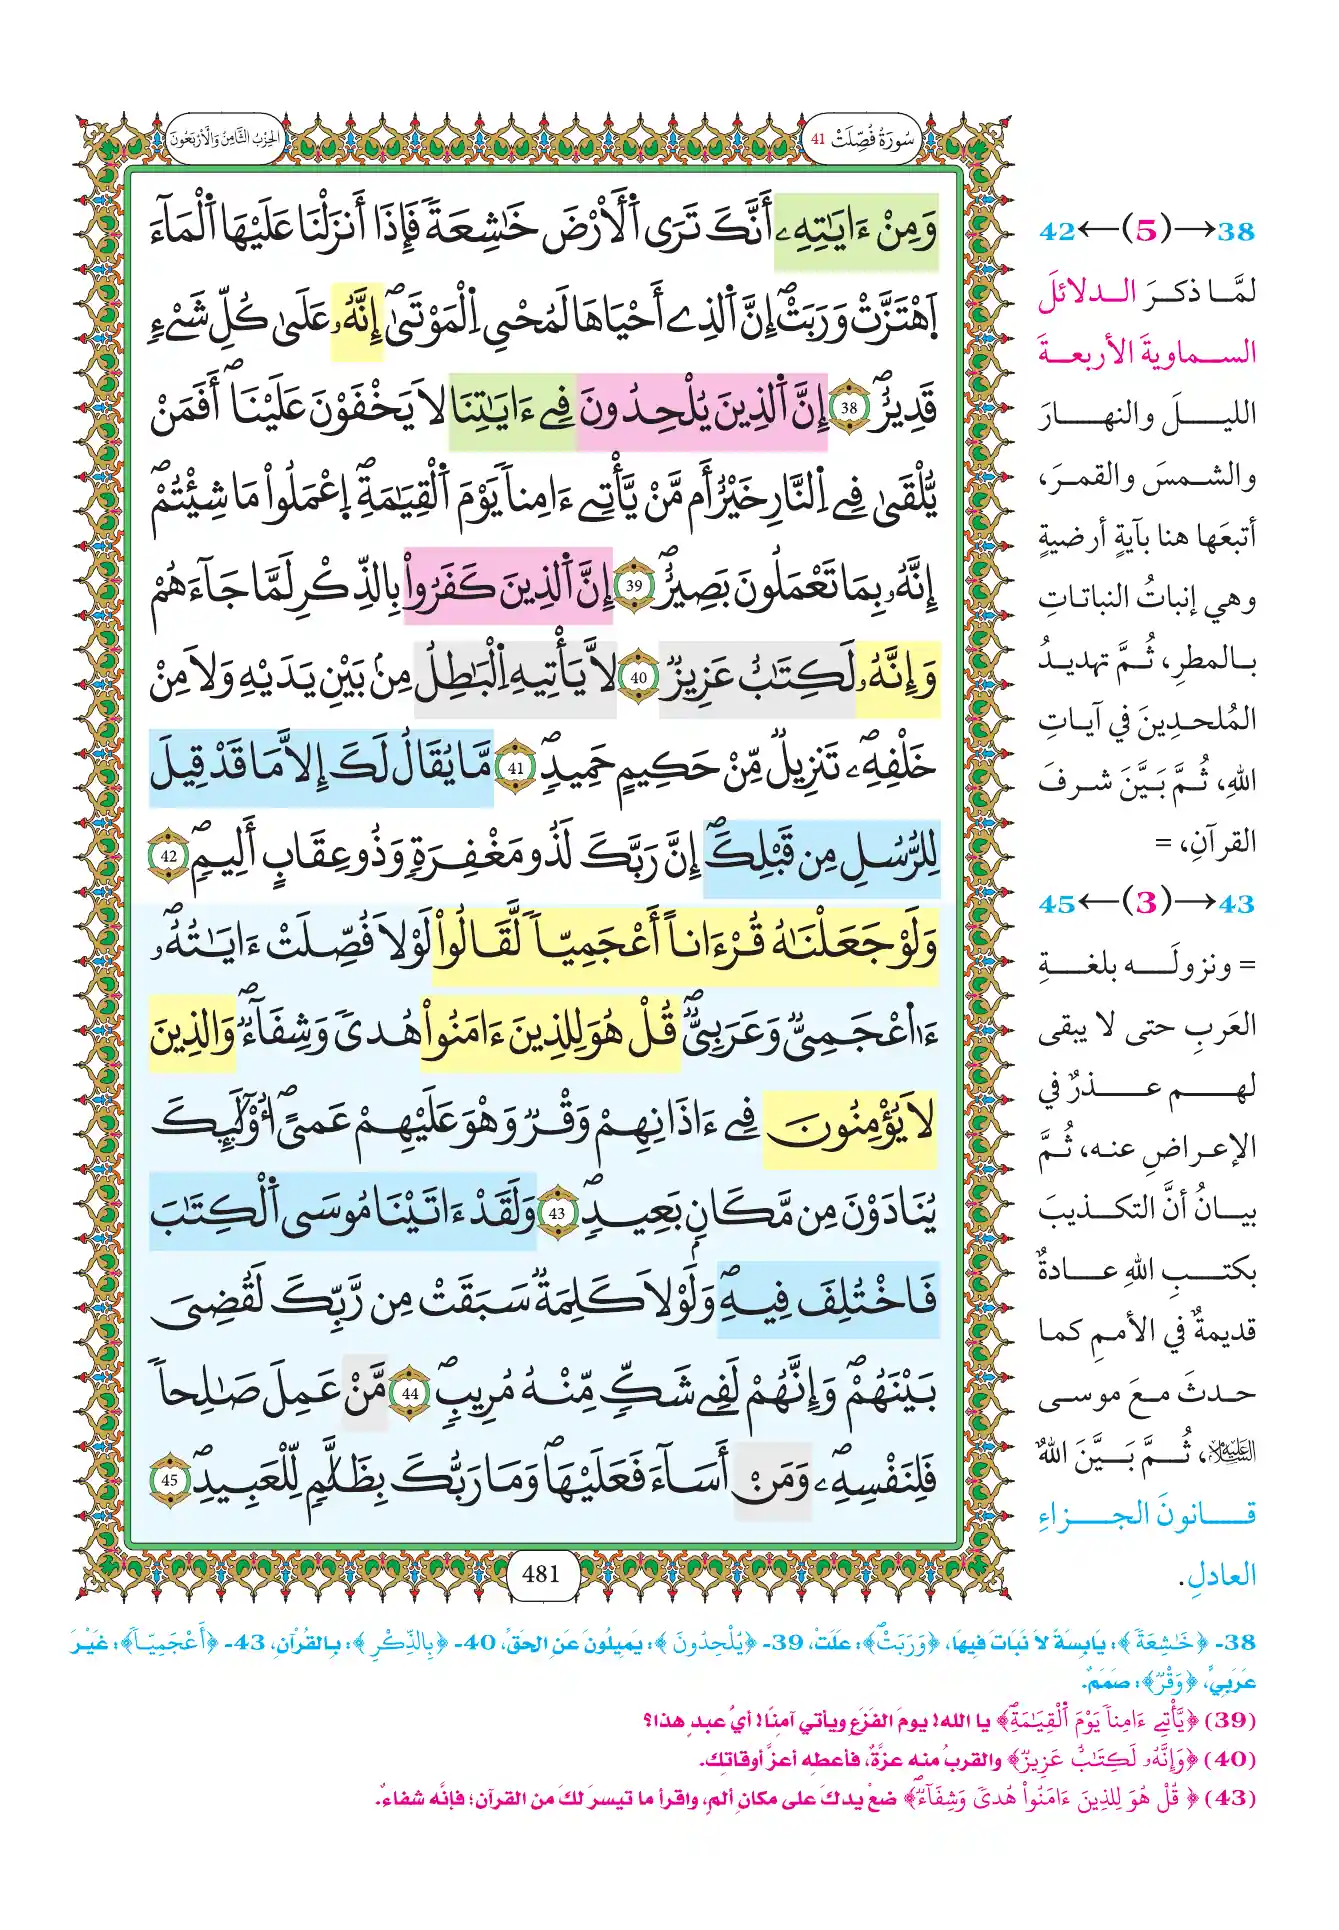 سُورَةُ فُصِّلَتْ 41
الحِزْبُ الثَّامِنُ وَالأَرْبَعُونَ
وَمِنْ ءَايَٰتِهِۦ أَنَّكَ تَرَى اَلَارْضَ خَٰشِعَةٗ فَإِذَا أَنزَلْنَا عَلَيْهَا اَلْمَآءَ
اَهْتَزَّتْ وَرَبَتْ إِنَّ اَلذِے أَحْيَاهَا لَمُحْيِ اِلْمَوْتَىٰ إِنَّهُۥ عَلَىٰ كُلِّ شَےْءٖ
قَدِيرٌ 38 إِنَّ اَلذِينَ يُلْحِدُونَ فِے ءَايَٰتِنَا لَا يَخْفَوْنَ عَلَيْنَا أَفَمَنْ
يُّلْقَىٰ فِے اِلنَّارِ خَيْرٌ أَم مَّنْ يَّأْتِے ءَامِناٗ يَوْمَ اَلْقِيَٰمَةِ اِعْمَلُواْ مَا شِئْتُمُۥ
إِنَّهُۥ بِمَا تَعْمَلُونَ بَصِيرٌ 39 إِنَّ اَلذِينَ كَفَرُواْ بِالذِّكْرِ لَمَّا جَآءَهُمْ
وَإِنَّهُۥ لَكِتَٰبٌ عَزِيزٞ 40 لَّا يَأْتِيهِ اِلْبَٰطِلُ مِنۢ بَيْنِ يَدَيْهِ وَلَا مِنْ
خَلْفِهِۦ تَنزِيلٞ مِّنْ حَكِيمٍ حَمِيدٖ 41 مَّا يُقَالُ لَكَ إِلَّا مَا قَدْ قِيلَ
لِلرُّسُلِ مِن قَبْلِكَ إِنَّ رَبَّكَ لَذُو مَغْفِرَةٖ وَذُو عِقَابٍ أَلِيمٖ 42
وَلَوْ جَعَلْنَٰهُ قُرْءَاناً أَعْجَمِيّاٗ لَّقَالُواْ لَوْلَا فُصِّلَتْ ءَايَٰتُهُۥ
ءَا۬عْجَمِيّٞ وَعَرَبِيّٞ قُلْ هُوَ لِلذِينَ ءَامَنُواْ هُدىٗ وَشِفَآءٞ وَالذِينَ
لَا يُؤْمِنُونَ فِے ءَاذَانِهِمْ وَقْرٞ وَهْوَ عَلَيْهِمْ عَمىً اُوْلَٰٓئِكَ
يُنَادَوْنَ مِن مَّكَانِۢ بَعِيدٖ 43 وَلَقَدْ ءَاتَيْنَا مُوسَى اَلْكِتَٰبَ
فَاخْتُلِفَ فِيهِ وَلَوْلَا كَلِمَةٞ سَبَقَتْ مِن رَّبِّكَ لَقُضِيَ
بَيْنَهُمْ وَإِنَّهُمْ لَفِے شَكّٖ مِّنْهُ مُرِيبٖ 44 مَّنْ عَمِلَ صَٰلِحاٗ
فَلِنَفْسِهِۦ وَمَنَ اَسَآءَ فَعَلَيْهَا وَمَا رَبُّكَ بِظَلَّٰمٖ لِّلْعَبِيدِ 45
481
38→(5)←42
لمَّا ذكرَ الدلائلَ
السماويةَ الأربعةَ
الليلَ والنهارَ
والشمسَ والقمرَ،
أتبعَها هنا بآيةٍ أرضيةٍ
وهي إنباتُ النباتاتِ
بالمطرِ، ثُمَّ تهديدُ
المُلحدِينَ في آياتِ
اللهِ، ثُمَّ بَيَّنَ شرفَ
القرآنِ، =
43→(3)←45
= ونزولَه بلغةِ
العَربِ حتى لا يبقى
لهم عذرٌ في
الإعراضِ عنه، ثُمَّ
بيانُ أنَّ التكذيبَ
بكتبِ اللهِ عادةٌ
قديمةٌ في الأممِ كما
حدثَ معَ موسى
عليه السلام، ثُمَّ بَيَّنَ اللهُ
قانونَ الجزاءِ
العادلِ.
38- ﴿خَٰشِعَةٗ﴾: يَابِسَةً لَا نَبَاتَ فِيهَا، ﴿وَرَبَتْ﴾: عَلَتْ، 39- ﴿يُلْحِدُونَ﴾: يَمِيلُونَ عَنِ الحَقِّ، 40- ﴿بِالذِّكْرِ﴾: بِالقُرْآنِ، 43- ﴿أَعْجَمِيّاٗ﴾: غَيْرَ
عَرَبِيٍّ، ﴿وَقْرٞ﴾: صَمَمٌ.
(39) ﴿يَّأْتِے ءَامِناٗ يَوْمَ اَلْقِيَٰمَةِ﴾ يا الله! يومَ الفَزَعِ ويأتي آمنًا! أيُّ عبدٍ هذا؟
(40) ﴿وَإِنَّهُۥ لَكِتَٰبٌ عَزِيزٞ﴾ والقربُ منه عزَّةٌ، فأعطِه أعزَّ أوقاتِك.
(43) ﴿قُلْ هُوَ لِلذِينَ ءَامَنُواْ هُدىٗ وَشِفَآءٞ﴾ ضعْ يدكَ على مكانِ ألمٍ، واقرأ ما تيسرَ لكَ من القرآن؛ فإنَّه شفاءٌ.